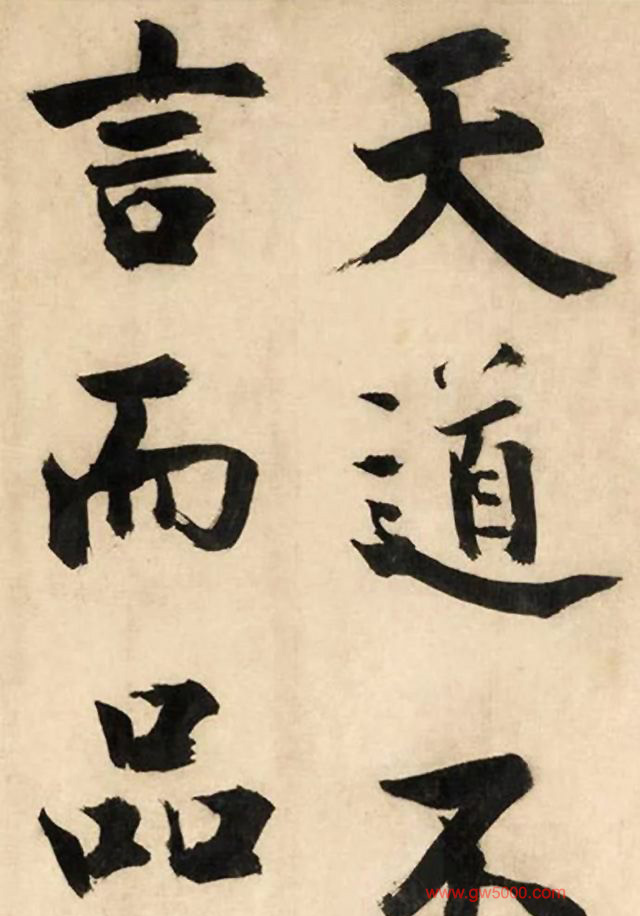 天道不
言而品
www.gw5000.com